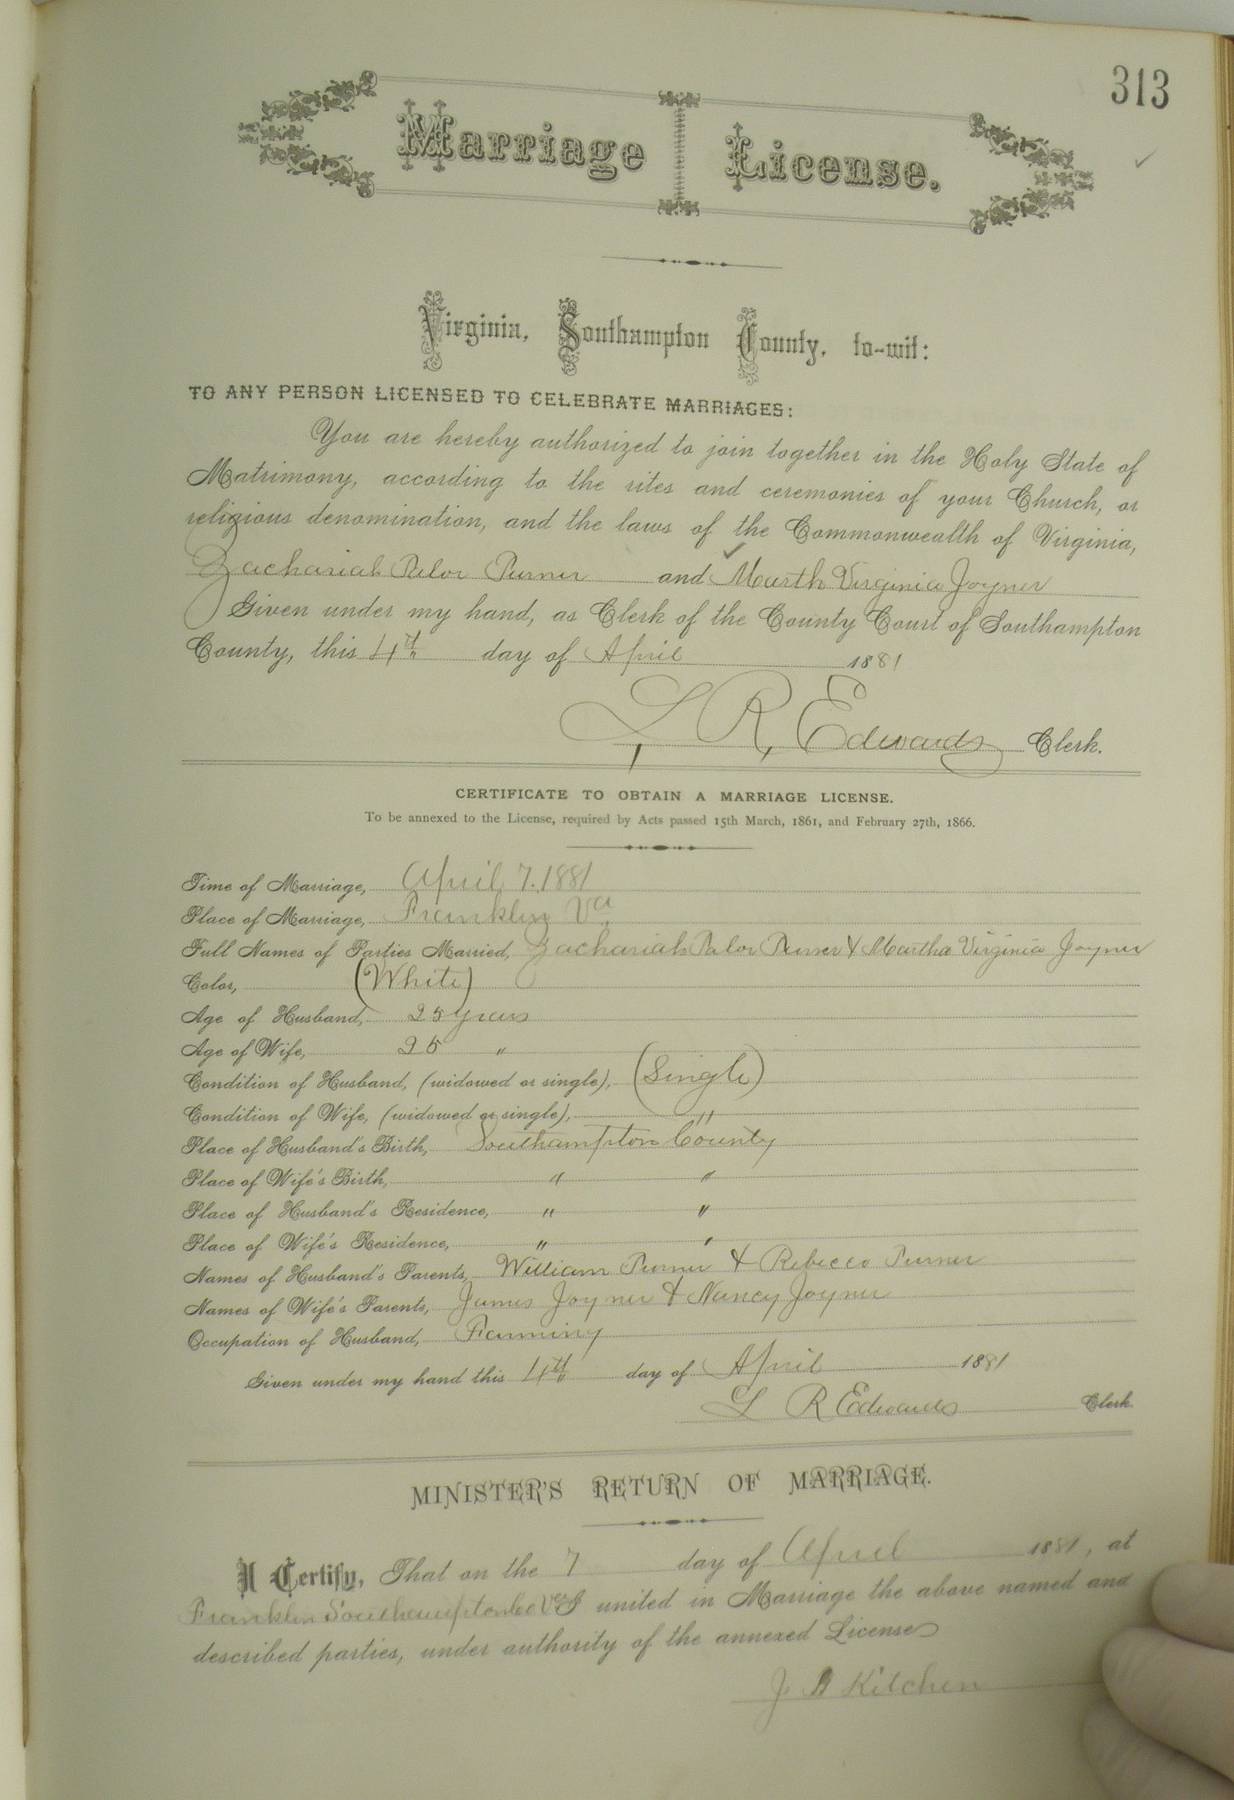 313
Marriage License.
Virginia, Southampton County, to-wit:
TO ANY PERSON LICENSED TO CELEBRATE MARRIAGES:
You are hereby authorized to join together in the Holy State of
Matrimony, according to the rites and ceremonies of your Church, or
religious denomination, and the laws of the Commonwealth of Virginia,
Zachariah Pelor Purner and Marth Virginia Joyner
Given under my hand, as Clerk of the County Court of Southampton
County, this 4th day of April 1881
L. R. Edwards Clerk.
CERTIFICATE TO OBTAIN A MARRIAGE LICENSE.
To be annexed to the License, required by Acts passed 15th March, 1861, and February 27th, 1866.
Time of Marriage, April 7. 1881
Place of Marriage, Franklin Va
Full Names of Parties Married, Zachariah Pelor Purner & Martha Virginia Joyner
Color, (White)
Age of Husband, 25 years
Age of Wife, 25 "
Condition of Husband, (widowed or single), (Single)
Condition of Wife, (widowed or single), "
Place of Husband's Birth, Southampton County
Place of Wife's Birth, " "
Place of Husband's Residence, " "
Place of Wife's Residence, " "
Names of Husband's Parents, William Purner & Rebecca Purner
Names of Wife's Parents, James Joyner & Nancy Joyner
Occupation of Husband, Farming
Given under my hand this 4th day of April 1881
L R Edwards Clerk.
MINISTER'S RETURN OF MARRIAGE.
I Certify, That on the 7 day of April 1881, at
Franklin Southampton Co Va I united in Marriage the above named and
described parties, under authority of the annexed License
J. B Kitchen